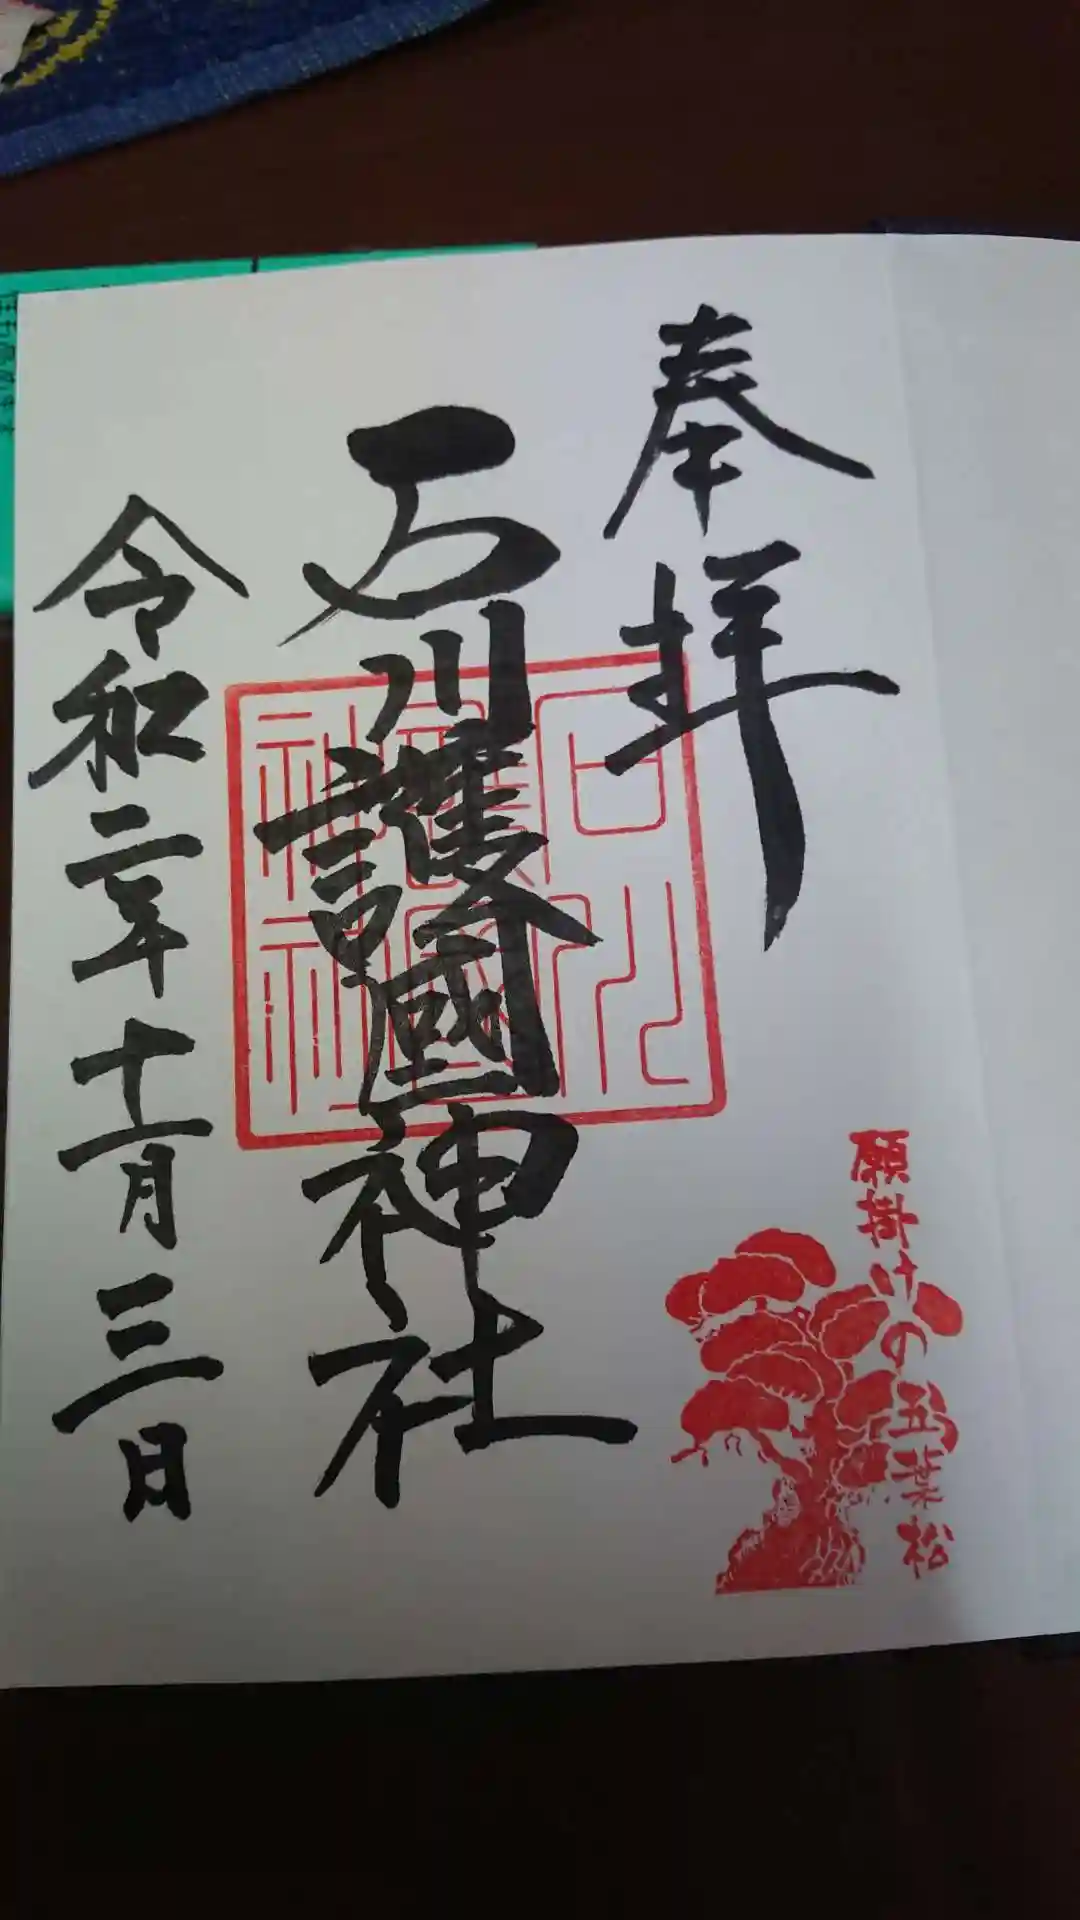 奉拝
石川護國神社
令和二年十一月三日
願掛けの五葉松
石川
護國
神社